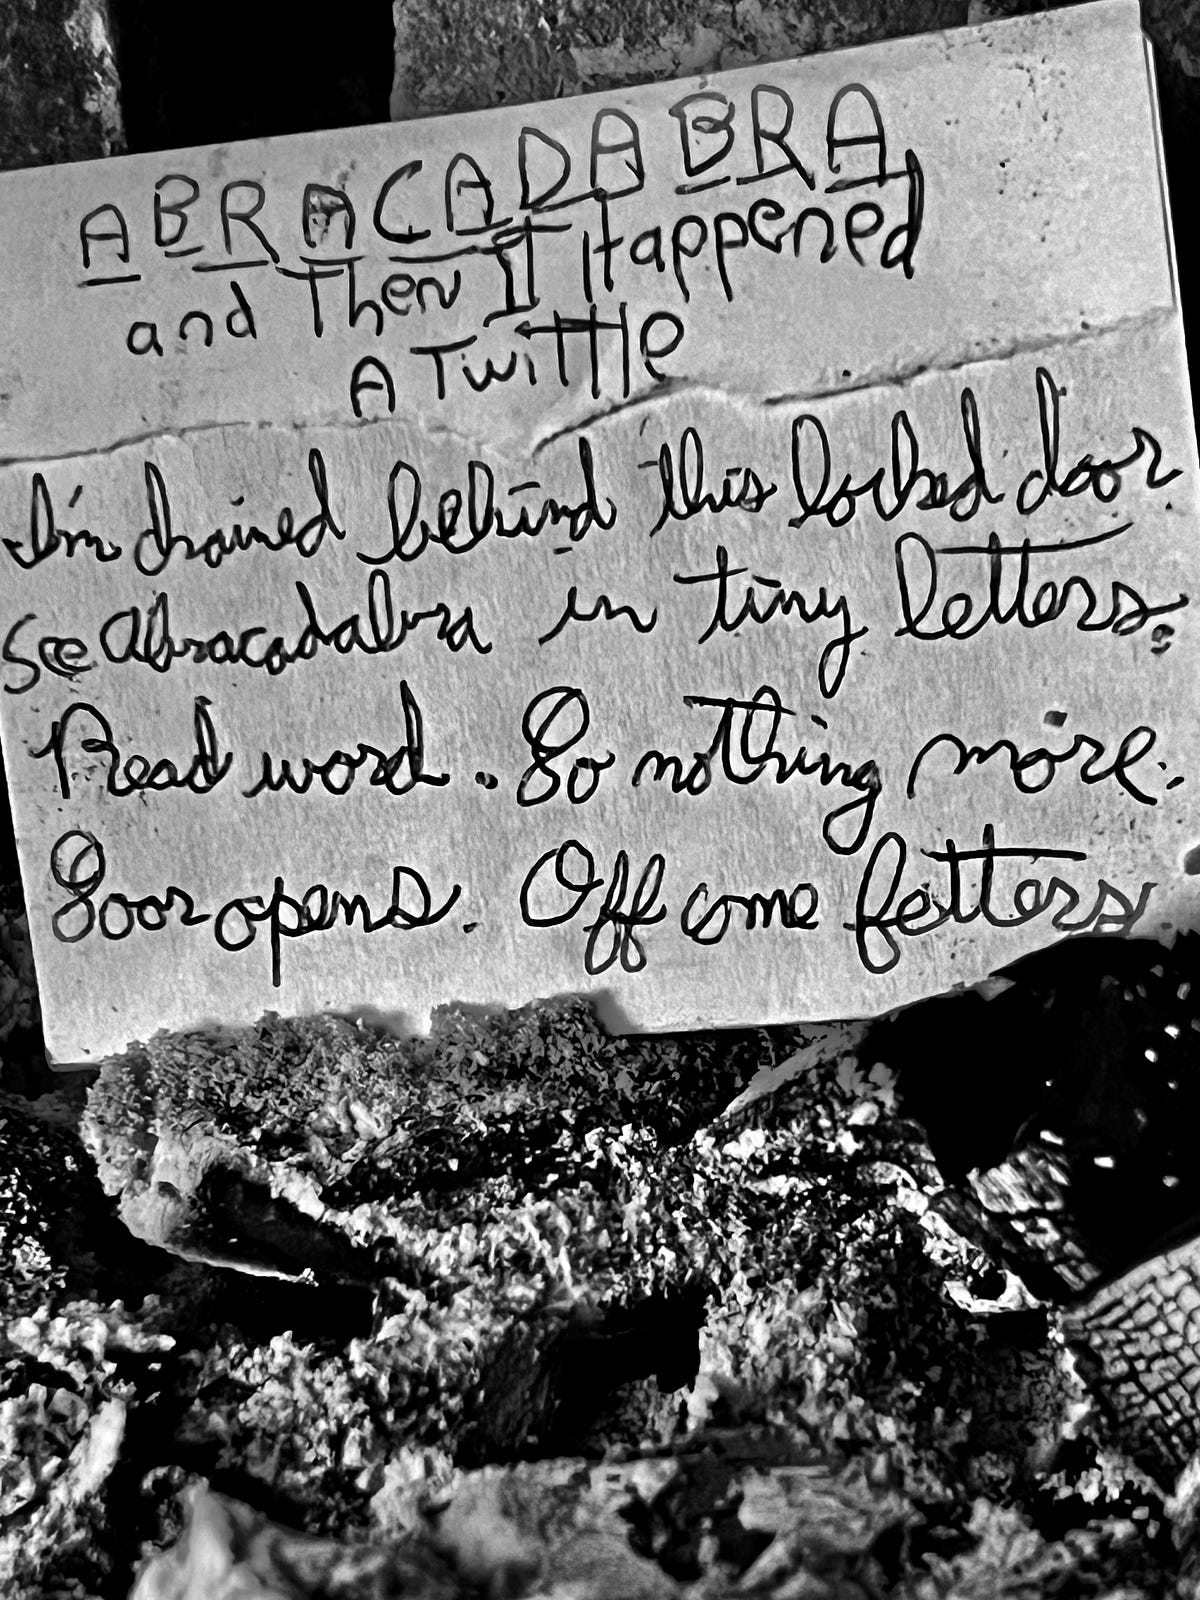 ABRACADABRA
and Then It Happened
A Twittle
I'm chained behind this locked door
See Abracadabra in tiny letters.
Read word. Do nothing more.
Door opens. Off come fetters